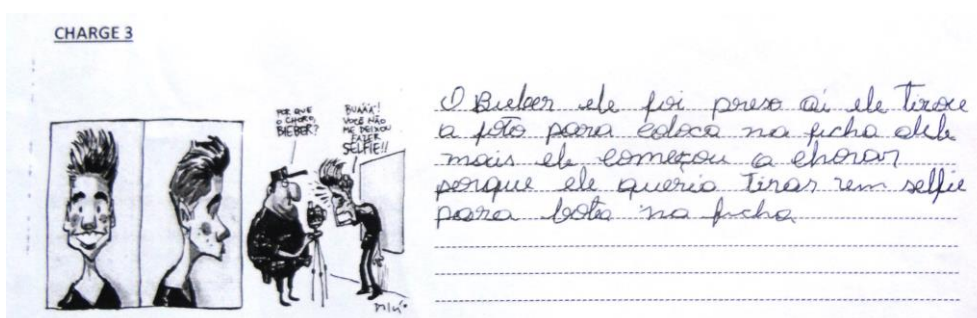 CHARGE 3
POR QUE
O CHORO,
BIEBER?
BUÁÁÁ!
VOCÊ NÃO
ME DEIXOU
FAZER
SELFIE!!
O Bieber ele foi preso ai ele tirou
a foto para coloca na ficha dele
mais ele começou a chorar
porque ele queria tirar um selfie
para bota na ficha.